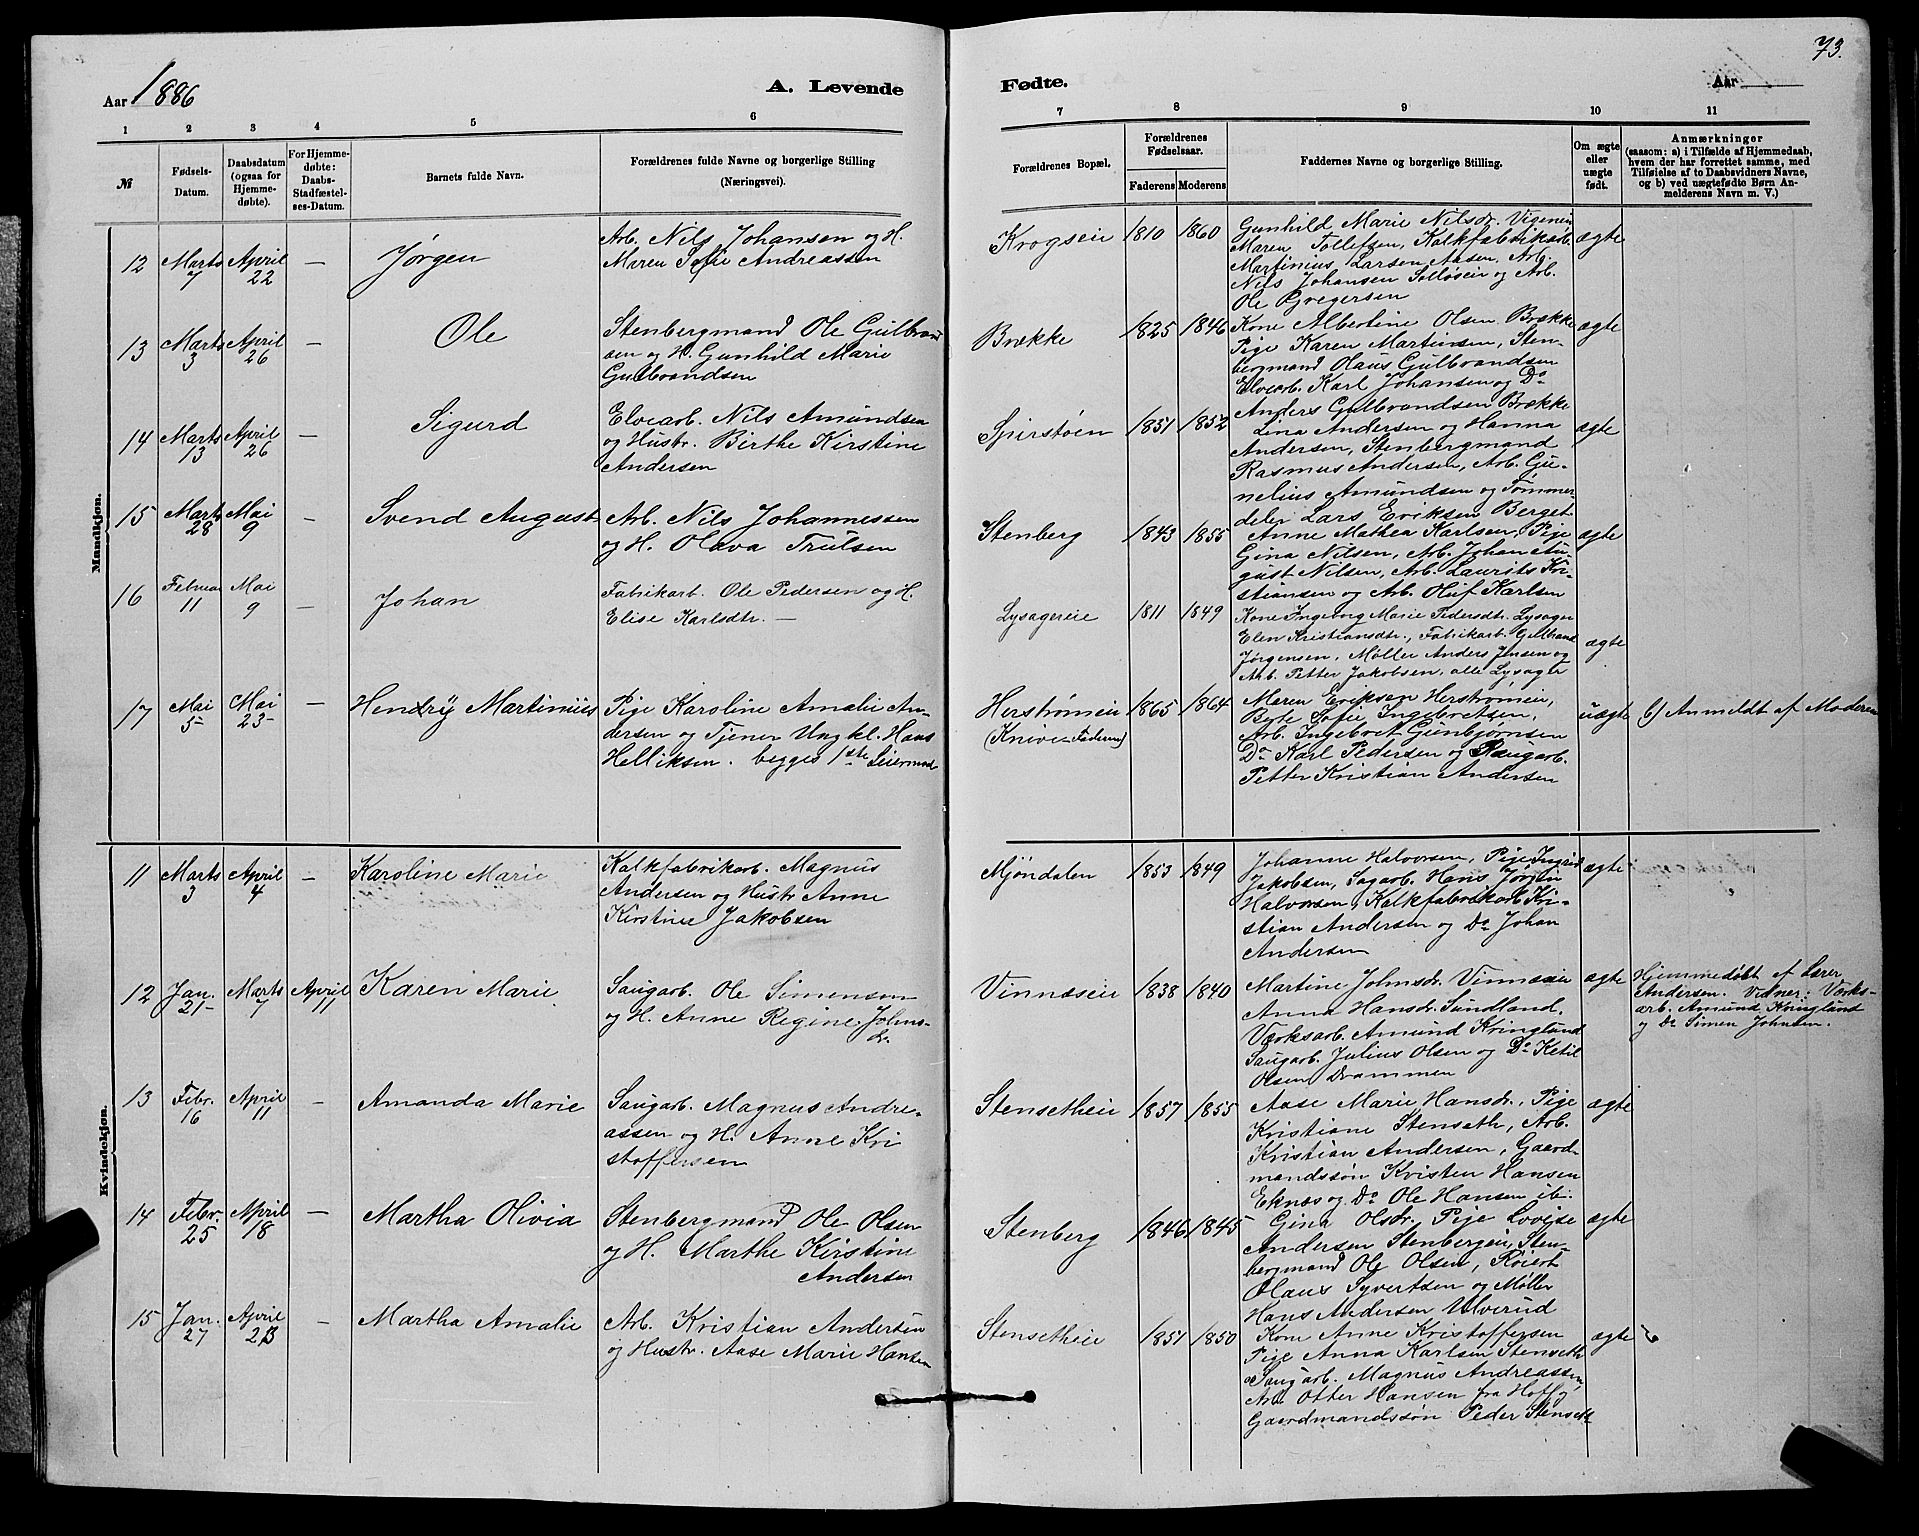 73.
Aar 1886
A. Levende
Fødte.
Aar
1 2 3 4 5 6 7 8 9 10 11
№
Fødsels-
Datum.
Daabsdatum
(ogsaa for
Hjemme-
døbte).
For Hjemme-
døbte:
Daabs-
Stadfæstel-
ses-Datum.
Barnets fulde Navn.
Forældrenes fulde Navne og borgerlige Stilling
(Næringsvei).
Forældrenes Bopæl.
Forældrenes
Fødselsaar.
Faderens Moderens
Faddernes Navne og borgerlige Stilling.
Om ægte
eller
uægte
født.
Anmærkninger
(saasom: a) i Tilfælde af Hjemmedaab,
hvem der har forrettet samme, med
Tilføielse af to Daabsvidners Navne,
og b) ved uægtefødte Børn An-
melderens Navn m. V.)
Mandkjøn.
12 Marts 7 April 22 — Jørgen
Arb. Nils Johansen og H.
Maren Sofie Andreassen
Krogseie 1810 1860
Gunhild Marie Nilsdr. Vigeneie
Maren Tollefsen, Kalkfabrikarb.
Martinius Larsen Aasen, Arb.
Nils Johansen Solløseie og Arb.
Ole Gregersen
ægte
13 Marts 3 April 26 — Ole
Stenbergmand Ole Gulbrand
sen og H. Gunhild Marie
Gulbrandsen
Brække 1825 1846
Kone Albertine Olsen Brække
Pige Karen Martinsen, Sten-
bergmand Olaus Gulbrandsen
Elvearb. Karl Johansen og Do
Anders Gulbrandsen Brække
ægte
14 Marts 13 April 26 — Sigurd
Elvearb. Nils Amundsen
og Hustr. Birthe Kirstine
Andersen
Spirstøen 1851 1852
Lina Andersen og Hanna
Andersen, Stenbergmand
Rasmus Andersen, Arb. Gu-
nelius Amundsen og Tømmer-
deler Lars Eriksen Berget
ægte
15 Marts 28 Mai 9 — Svend August
Arb. Nils Johannessen
og H. Olava Trulsen
Stenberg 1843 1855
Anne Mathea Karlsen, Pige
Gina Nilsen, Arb. Johan Au-
gust Nilsen, Arb. Laurits Kri-
stiansen og Arb. Oluf Karlsen
ægte
16 Februar 11 Mai 9 — Johan
Fabrikarb. Ole Pedersen og H.
Elise Karlsdtr. —
Lysagereie 1811 1849
Kone Ingeborg Marie Pedersdtr. Lysager
Elen Kristiansdtr., Fabrikarb. Gulbrand
Jørgensen, Møller Anders Jensen og
Arb. Petter Jakobsen, alle Lysager
ægte
17 Mai 5 Mai 23 — Hendry Martinius
Pige Karoline Amalie An-
dersen og Tjener Ungkl. Hans
Helliksen. begges 1ste Leiermaal
Herstrømeie
(Knive-Faderen)
1865 1864
Maren Eriksen Herstrømeie,
Berte Sofie Ingebretsen,
Arb. Ingebret Gunbjørnsen
Do Karl Pedersen og Saugarb.
Petter Kristian Andersen
uægte
b) Anmeldt af Moderen
Kvindekjøn.
11 Marts 3 April 4 — Karoline Marie
Kalkfabrikarb. Magnus
Andersen og Hustr Anne
Kirstine Jakobsen
Mjøndalen 1853 1849
Johanne Halvorsen, Pige Ingrid
Jakobsen, Sagarb. Hans Jørgen
Halvorsen, Kalkfabrikarb. Kri-
stian Andersen og Do Johan
Andersen
ægte
12 Jan. 21 Marts 7 April 11 Karen Marie
Saugarb. Ole Simensen
og H. Anne Regine Johns-
dr.
Vinnæseie 1838 1840
Martine Johnsdr. Vinnæseie
Anna Hansdr. Sundland,
Værksarb. Amund Kringlund
Saugarb. Julius Olsen og Do Ketil
Olsen Drammen
ægte
Hjemmedøbt af Lærer
Andersen. Vidner: Værks-
arb. Amund Kringlund
og Do Simen Johnsen.
13 Febr. 16 April 11 — Amanda Marie
Saugarb. Magnus Andre-
assen og H. Anne Kri
stoffersen
Stensetheie 1857 1855
Aase Marie Hansdr, Pige
Kristiane Stenseth, Arb.
Kristian Andersen, Gaard-
mandssøn Kristen Hansen
Eknæs og Do Ole Hansen ib.
ægte
14 Febr. 25 April 18 — Martha Olivia
Stenbergmand Ole Olsen
og H. Marthe Kirstine
Andersen
Stenberg 1846 1845
Gina Olsdr. Pige Lovise
Andersen Stenbergen, Sten-
bergmand Ole Olsen, Roiert
Olaus Syvertsen og Møller
Hans Andersen Ulverud
ægte
15 Jan. 27 April 23 — Martha Amalie
Arb. Kristian Andersen
og Hustr. Aase Marie Hansen
Stensetheie 1851 1850
Kone Anne Kristoffersen
Pige Anna Karlsen Stenseth
Saugarb. Magnus Andreassen,
Arb Otter Hansen fra Hoff og
Gaardmandssøn Peder Stenseth
ægte